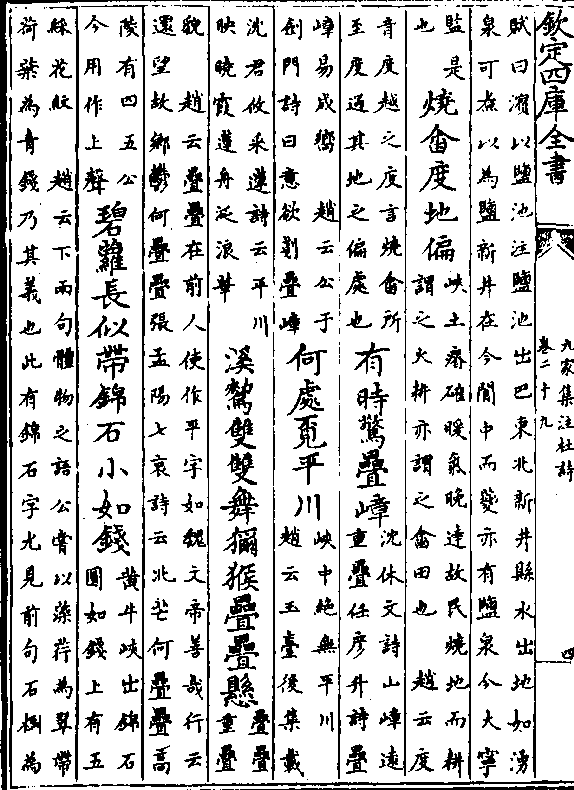 欽定四庫全書
九家集注杜詩
卷二十九
四
賦曰濱以鹽池注鹽池出巴東北新井縣水出地如湧
泉可煮以為鹽新井在今閬中而夔亦有鹽泉今大寧
監是
也
燒畬度地偏
峽土瘠确暖氣晚達故民燒地而耕
謂之火耕亦謂之畬田也 趙云度
音度越之度言燒畬所
至度過其地之偏處也
有時驚疊嶂
沈休文詩山嶂遠
重疊任彥升詩疊
嶂易成響 趙云公于
劍門詩曰意欲剗疊嶂
何處覓平川
峽中絶無平川
趙云玉臺後集載
沈君攸采蓮詩云平川
映曉霞蓮舟泛浪華
溪鷘雙雙舞獼猴疊疊懸
疊疊
重疊
貌 趙云疊疊在前人使作平字如魏文帝善哉行云
還望故鄉鬱何疊疊張孟陽七哀詩云北芒何疊疊高
陵有四五公
今用作上聲
碧蘿長似帶錦石小如錢
黄牛峽出錦石
圓如錢上有五
綵花紋 趙云下兩句體物之語公嘗以藻荇為翠帶
荷葉為青錢乃其義也此有錦石字尤見前句石樹為